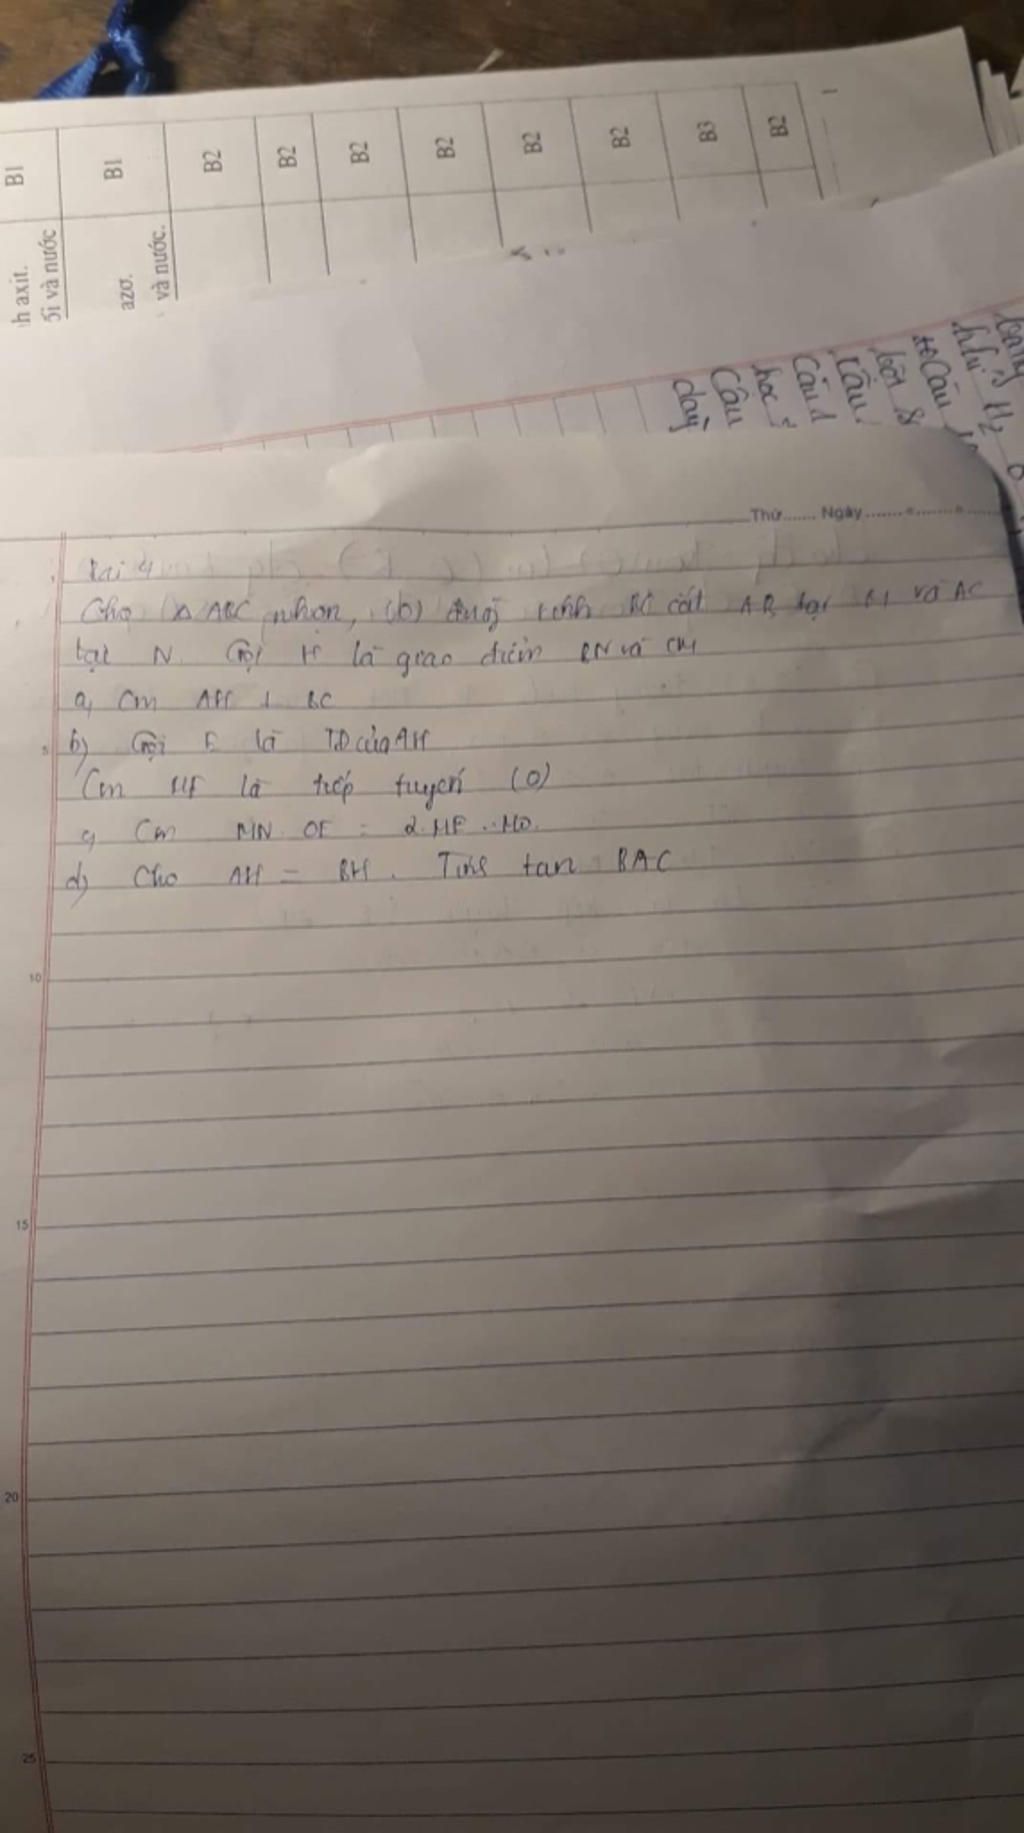 B1
B1
B2
B2
B2
B2
B2
B2
B3
B2
h axit.
ối và nước
azơ.
và nước.
1
khí H2
Câu
Câu 1
học
Câu
dãy
Thứ....... Ngày
bài 4
Cho △ ABC nhọn, (O) đường kính BC cắt AB tại M và AC
tại N. Gọi H là giao điểm BN và CM
a, Cm AH ⊥ BC
5
b) Gọi E là TĐ của AH
Cm ME là tiếp tuyến (O)
c, Cm MN . OE = 2.ME . MO.
d) Cho AH = BH . Tính tan BAC
10
15
20
25